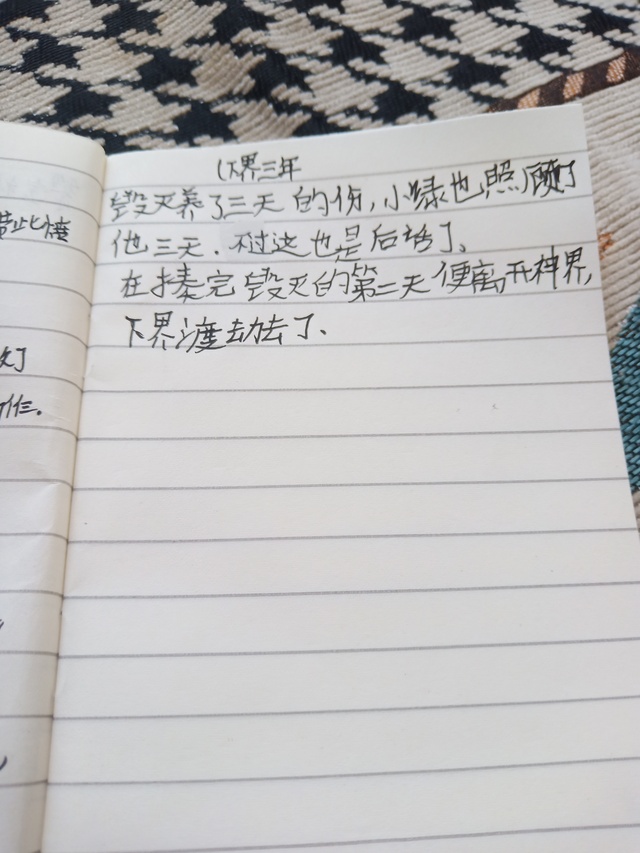 黄此倕
了
作三.
(下界三年
毁灭养了三天的伤,小绿也照顾了
他三天.不过这也是后话了。
在揍完毁灭的第二天便离开神界,
下界渡劫去了.